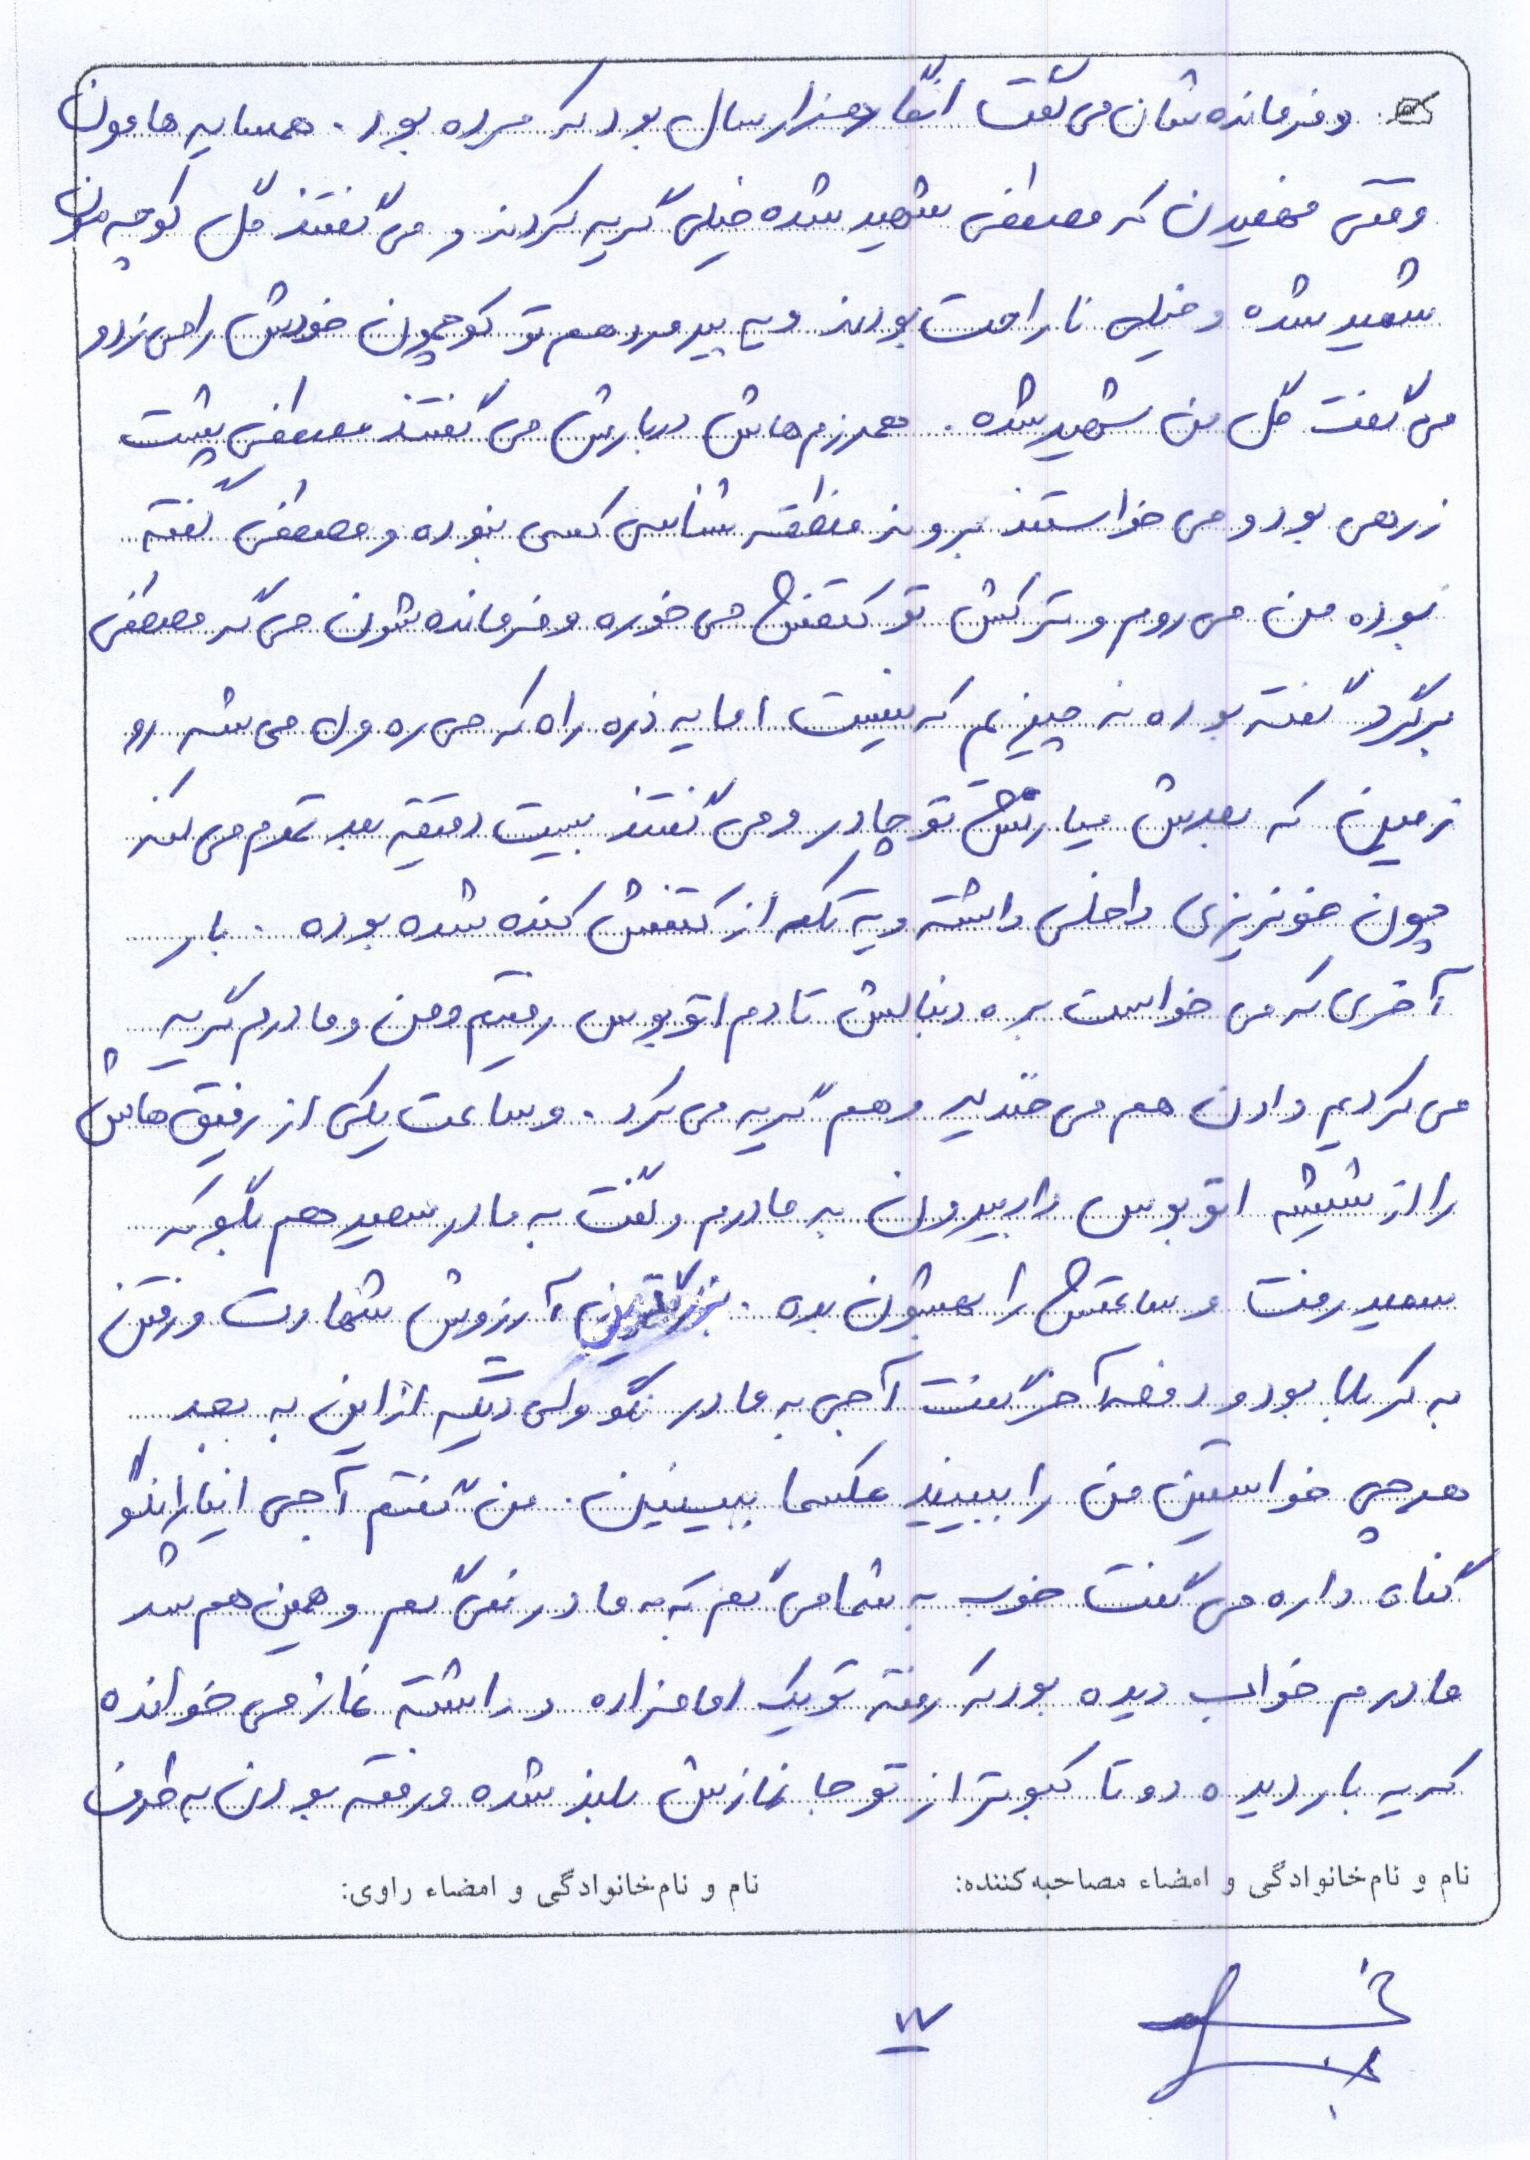 و فرمانده شان می گفت انگار دهزار سال بود که مرده بود. همسایه هامون
وقتی فهمیدن که مصطفی شهید شده خیلی گریه کردند و می گفتند گل کوچه مون
شهید شده و خیلی ناراحت بودند و یه پیرمرد هم تو کوچمون خودش را می زد و
می گفت گل من شهید شده. همرزم هاش دربارش می گفتند مصطفی پشت
زرهی بود و می خواستند بروند منطقه شناسی کسی نبوده و مصطفی گفته
بوده من می روم و ترکش تو کتفش می خوره و فرمانده شون می گه مصطفی
برگرد گفته بوده نه چیزیم که نیست اما یه ذره راه که می ره ول می شه رو
زمین که بعدش میارنش تو چادر و می گفتند بیست دقیقه بعد تموم می کنه
چون خونریزی داخلی داشته و یه تکه از کتفش کنده شده بوده. بار
آخری که می خواست بره دنبالش تا دم اتوبوس رفتیم و من و مادرم گریه
می کردیم و اون هم می خندید و هم گریه می کرد. و ساعت یکی از رفیق هاش
را از شیشه اتوبوس داد بیرون به مادرم و گفت به مادر سعید هم بگو که
سعید رفت و ساعتش را بهشون بده. بزرگترین آرزوش شهادت و رفتن
به کربلا بود و دفعه آخر گفت آجی به مادر نگو ولی دیگه از این به بعد
هرچی خواستین من را ببینید عکسما ببینین. من گفتم آجی اینا را نگو
گناه داره می گفت خوب به شما می گم که به مادر نمی گم و همین هم شد
مادرم خواب دیده بود که رفته تو یک امامزاده و داشته نماز می خوانده
که یه بار دیده دو تا کبوتر از تو جا نمازش بلند شده و رفته بودن به طرف
نام و نام خانوادگی و امضاء مصاحبه کننده: نام و نام خانوادگی و امضاء راوی: